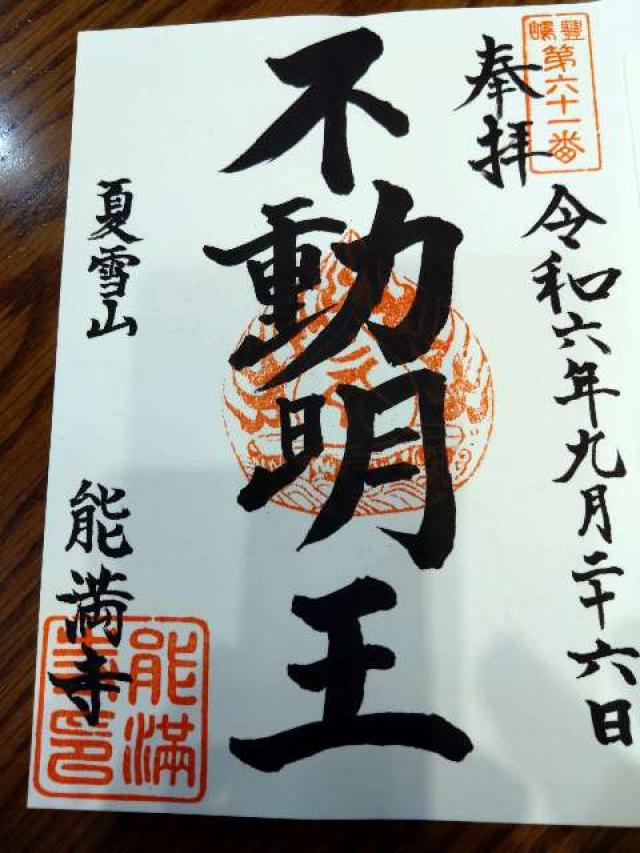 豊嶋
第六十一番
奉拝
令和六年九月二十六日
不動明王
夏雪山
能満寺
能満
寺印